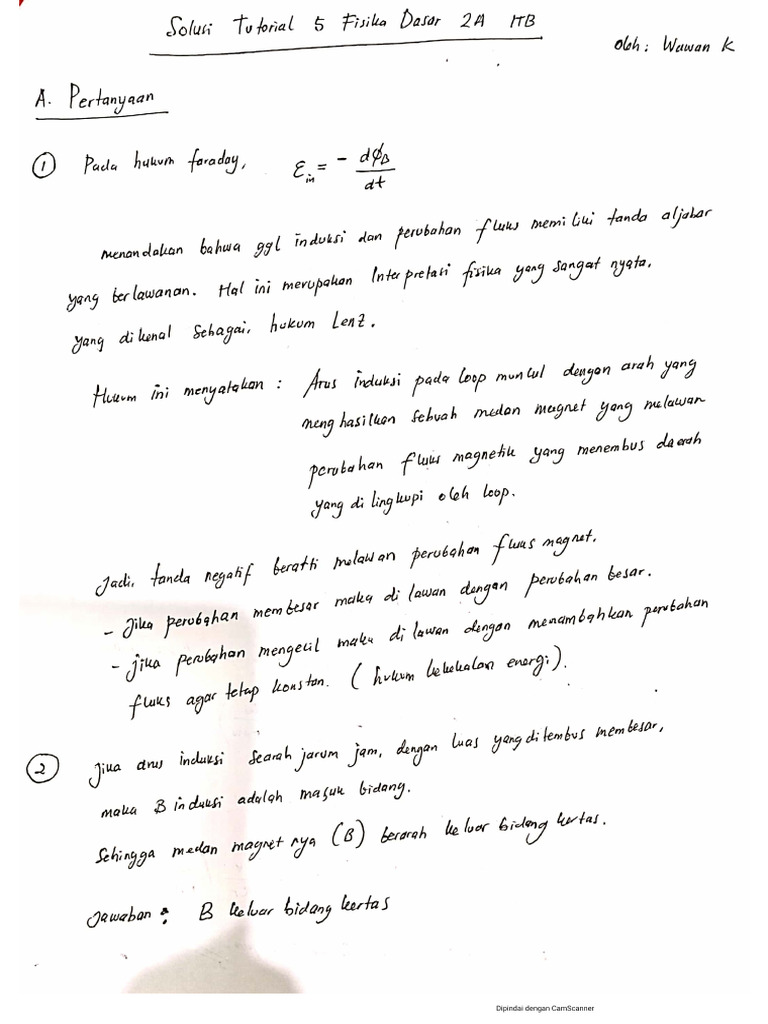 Solusi Tutorial 5 Fisika Dasar 2A ITB
Oleh: Wawan K
A. Pertanyaan
1 Pada hukum faraday, Ɛin = - dϕB/dt
menandakan bahwa ggl induksi dan perubahan fluks memiliki tanda aljabar
yang berlawanan. Hal ini merupakan Interpretasi fisika yang sangat nyata,
yang dikenal sebagai, hukum Lenz.
Hukum ini menyatakan : Arus induksi pada loop muncul dengan arah yang
menghasilkan sebuah medan magnet yang melawan
perubahan fluks magnetik yang menembus daerah
yang di lingkupi oleh loop.
Jadi, tanda negatif berarti melawan perubahan fluks magnet.
- Jika perubahan membesar maka di lawan dengan perubahan besar.
- jika perubahan mengecil maka di lawan dengan menambahkan perubahan
fluks agar tetap konstan. (hukum kekekalan energi).
2 Jika arus induksi searah jarum jam, dengan luas yang ditembus membesar,
maka B induksi adalah masuk bidang.
Sehingga medan magnet nya (B) berarah keluar bidang kertas.
Jawaban : B keluar bidang kertas
Dipindai dengan CamScanner